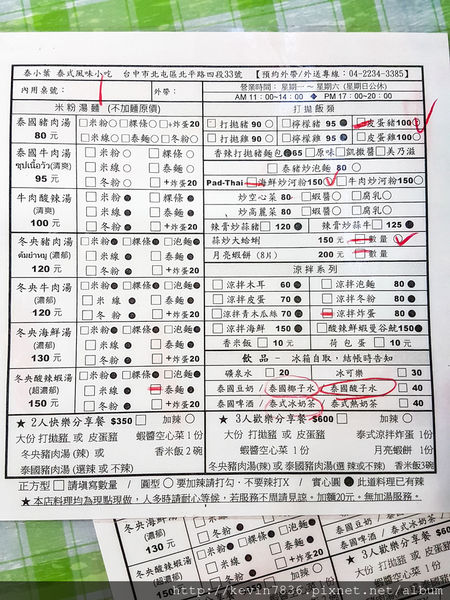 泰小葉 泰式風味小吃 台中市北屯區北平路四段33號 【預約外帶/外送專線：04-2234-3385】
內用桌號： 外帶： 營業時間：星期一 ~ 星期六 (星期日公休)
AM 11：00~14：00 PM 17：00~20：00
米粉湯麵 (不加麵原價)
泰國豬肉湯 80 元
米粉 粿條 +炸蛋20
米線 泰麵 冬粉
泰國牛肉湯 (清爽) 95 元
米粉 粿條
米線 泰麵
冬粉 +炸蛋20
牛肉酸辣湯 (清爽) 100 元
米粉 粿條
米線 泰麵
冬粉 +炸蛋20
冬央豬肉湯 (濃郁) 120 元
米粉 粿條 泡麵
米線 泰麵
冬粉 +炸蛋20
冬央牛肉湯 (濃郁) 120 元
米粉 粿條 泡麵
米線 泰麵
冬粉 +炸蛋20
冬央海鮮湯 (濃郁) 130 元
米粉 粿條 泡麵
米線 泰麵
冬粉 +炸蛋20
冬央酸辣蝦湯 (超濃郁) 150 元
米粉 粿條 泡麵
米線 泰麵
冬粉 +炸蛋20
打拋飯類
打拋豬 90 檸檬豬 95 皮蛋豬100
打拋雞 90 檸檬雞 95 皮蛋雞100
香辣打拋豬麵包65 原味 凱撒醬 美乃滋
泰豬炒泡麵 80
Pad-Thai 海鮮炒河粉150 牛肉炒河粉150
炒空心菜 80 蝦醬 腐乳
炒高麗菜 80 蝦醬 腐乳
辣膏炒蒜苔 120 辣膏炒蒜牛 125
蒜炒大蛤蜊 150 元 數量
月亮蝦餅 (8片) 200 元 數量
涼拌系列
涼拌木耳 60 涼拌泡麵 80
涼拌皮蛋 70 涼拌冬粉 80
涼拌青木瓜絲 70 涼拌炸蛋 80
涼拌海鮮 150 酸辣鮮蝦曼谷鍼150
香米飯 10 元 荷包蛋 10 元
飲品 - 冰箱自取，結帳時告知
礦泉水 20 冰可樂 30
泰國豆奶 / 泰國椰子水 / 泰國酸子水 40
泰國啤酒 / 泰式冰奶茶 / 泰式熱奶茶 40
★ 2人快樂分享餐 $350 加辣
大份 打拋豬 或 皮蛋豬
蝦醬空心菜 1份
冬央豬肉湯(辣) 或 香米飯 2碗
泰國豬肉湯 (選辣 或 不辣)
★ 3人歡樂分享餐 $600 加辣
大份 打拋豬 或 皮蛋豬 泰式涼拌炸蛋 1份
蝦醬空心菜 1份 月亮蝦餅 1份
冬央豬肉湯(辣) 或 泰國豬肉湯(選辣或不辣) 香米飯3碗
正方型 請填寫數量 / 圓型 要加辣請打勾、不要辣打X / 實心圓 此道料理已有辣
★ 本店料理均為現點現做，人多時請耐心等候，若服務不周請見諒。加麵20元。無加湯服務。
冬央海鮮湯 130 元
米粉 粿條
米線 泰麵
冬粉 +炸蛋20
150 元
泰國豆奶 /
泰國啤酒 / 泰式冰奶茶
★ 3人歡樂分享餐 $60
大份 打拋豬 或 皮蛋豬
蝦醬空心菜 1份
http://kevin7836.pixnet.net/album